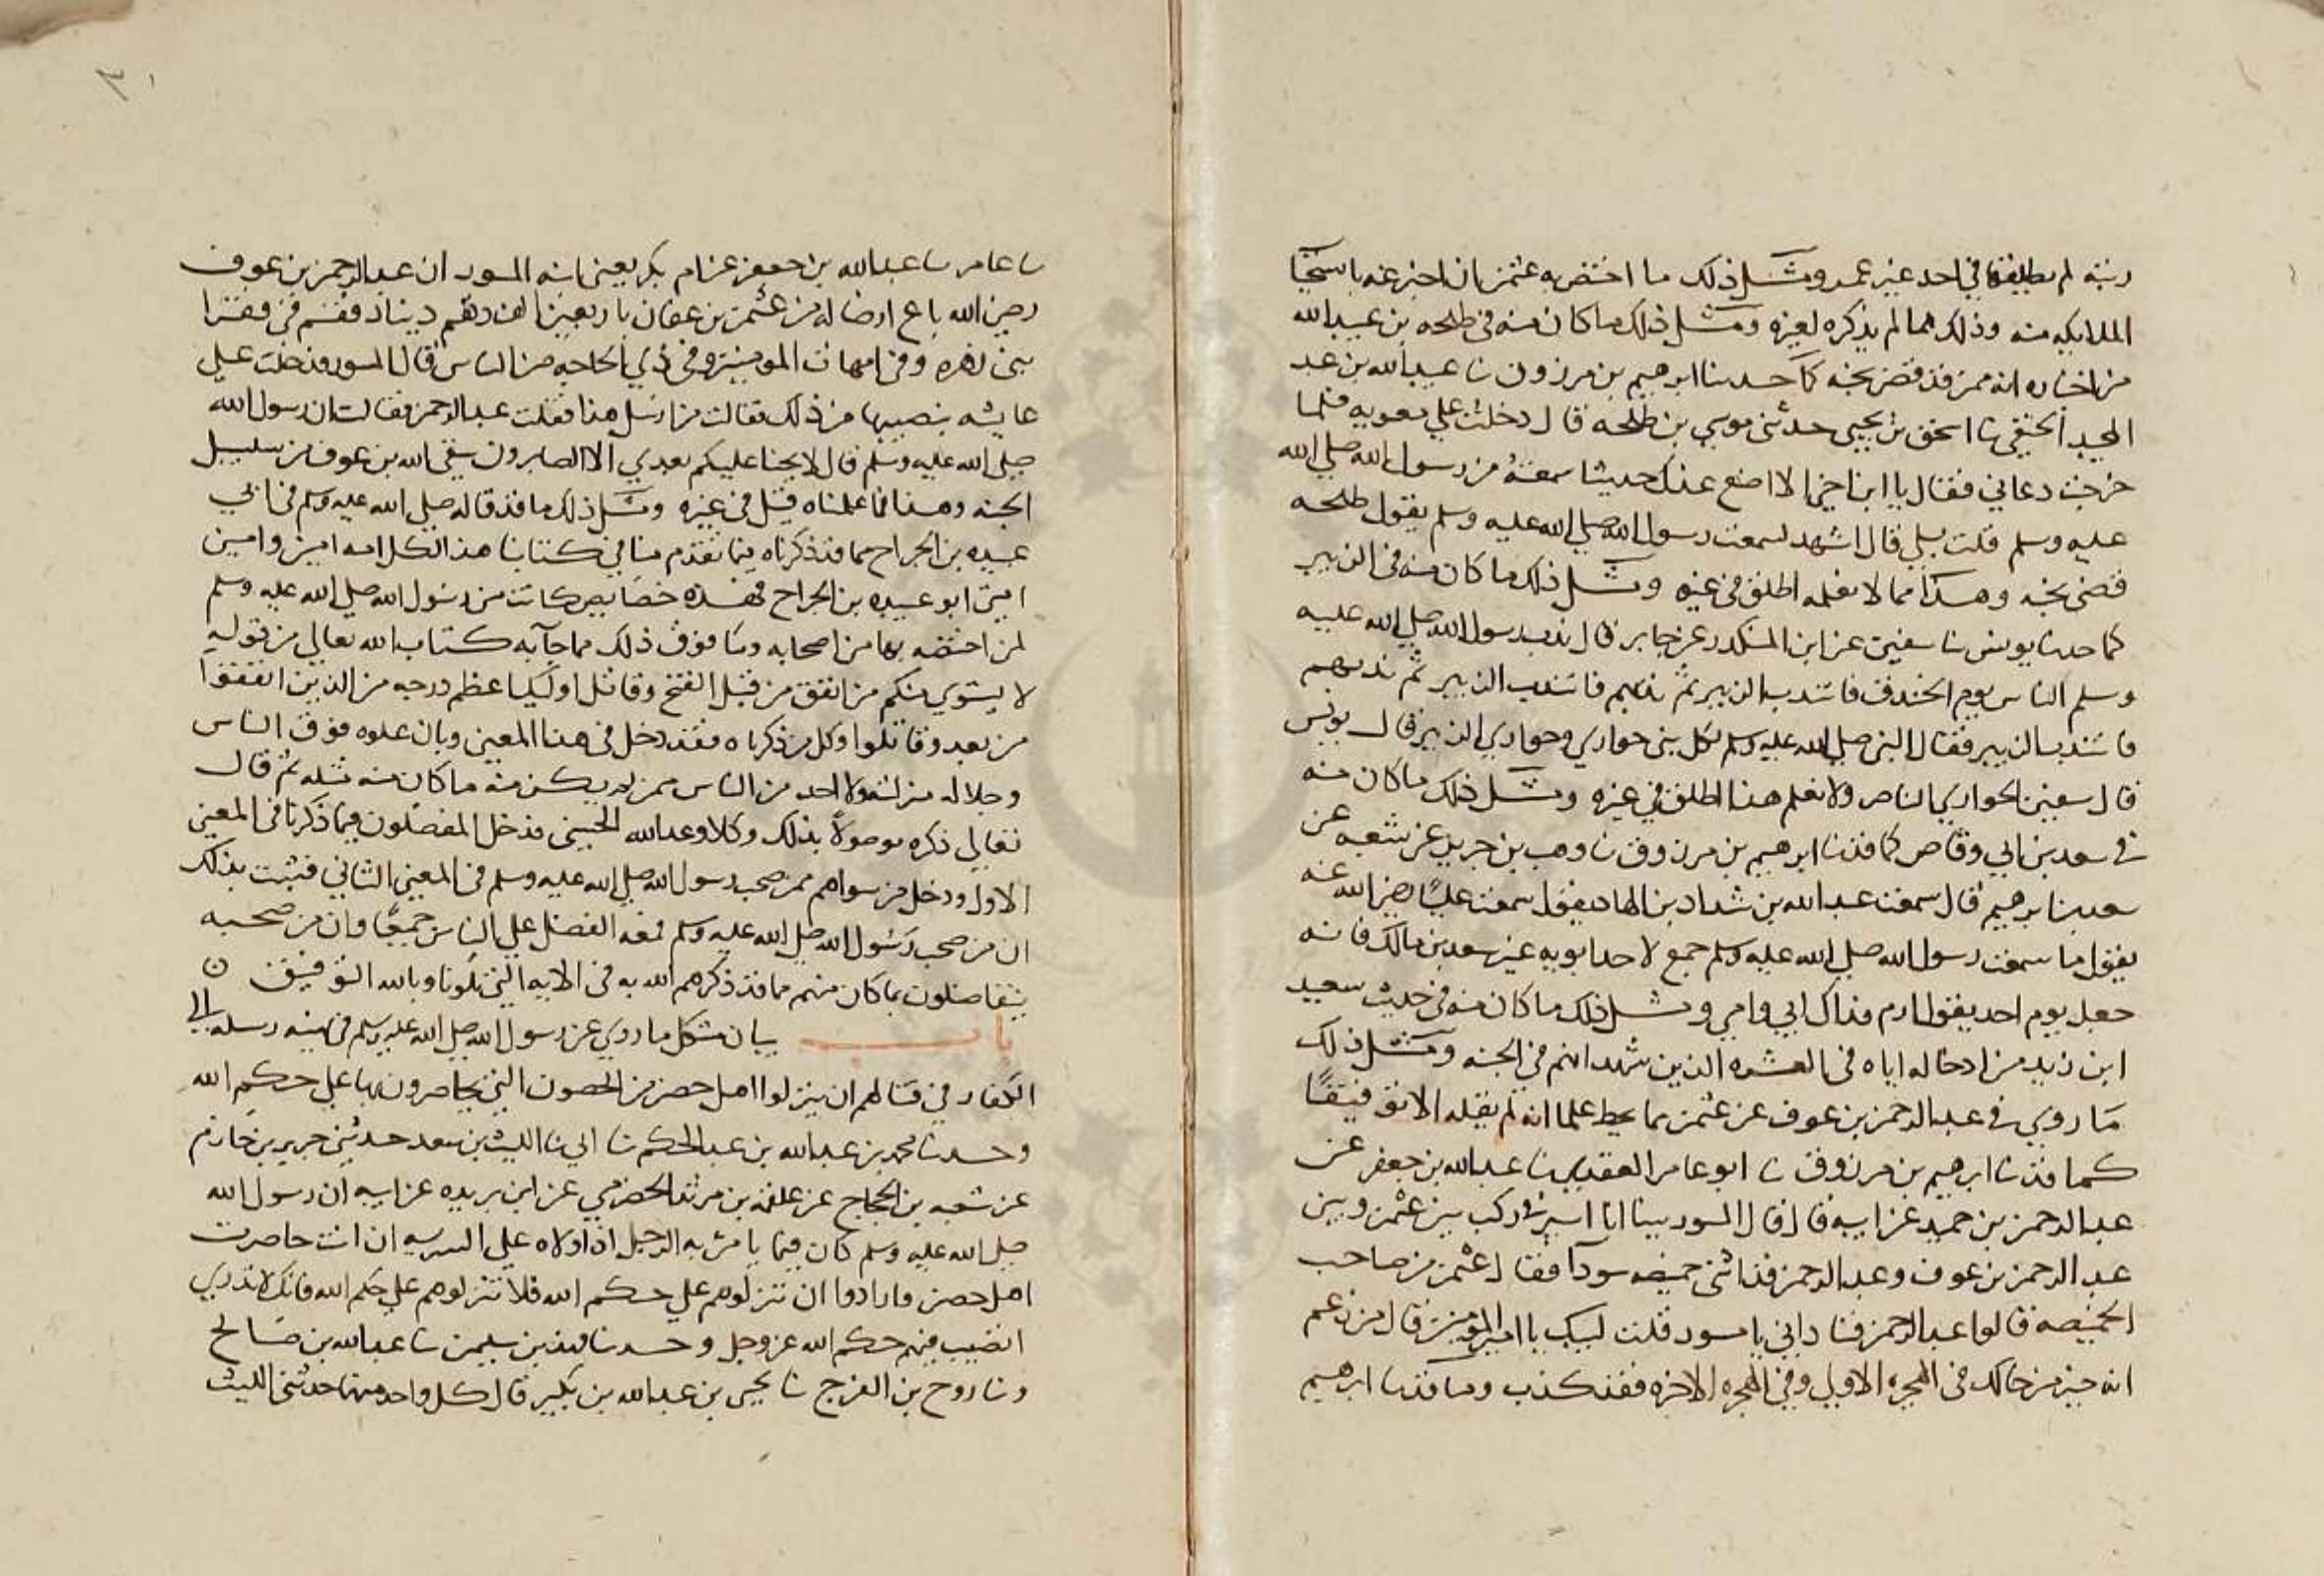 رتبته لم يطلقها في احد غير عمر ومثل ذلك ما اختص به عثمن بان اخبر عنه باستحيا
الملايكه منه وذلك مما لم يذكره لغيره ومثل ذلك ما كان منه في طلحه بن عبيد الله
من اخباره انه ممن قد قضى نحبه كما حدثنا ابرهيم بن مرزوق نا عبيد الله بن عبد
المجيد الحنفي نا اسحق بن يحيى حدثني موسى بن طلحه قال دخلت على معويه فلما
خرجت دعاني فقال يا ابن اخي الا اضع عندك حديثا سمعته من رسول الله صلى الله
عليه وسلم قلت بلى قال اشهد لسمعت رسول الله صلى الله عليه وسلم يقول طلحه
ممن قضى نحبه وهذا مما لا نعلمه اطلق في غيره ومثل ذلك ما كان منه في الزبير
كما حدثنا يونس نا سفين عن ابن المنكدر عن جابر قال ندب رسول الله صلى الله عليه
وسلم الناس يوم الخندق فانتدب الزبير ثم ندبهم فانتدب الزبير ثم ندبهم
فانتدب الزبير فقال النبي صلى الله عليه وسلم لكل نبي حواري وحواري الزبير قال يونس
قال سفين الحواري الناصر ولا نعلم هذا اطلق في غيره ومثل ذلك ما كان منه
في سعد بن ابي وقاص كما قد نا ابرهيم بن مرزوق نا وهب بن جرير عن شعبه عن
سعد بن ابرهيم قال سمعت عبد الله بن شداد بن الهاد يقول سمعت عليا رضي الله عنه
يقول ما سمعت رسول الله صلى الله عليه وسلم جمع لاحد ابويه غير سعد بن مالك فانه
جعل يوم احد يقول ارم فداك ابي وامي ومثل ذلك ما كان منه في حديث سعيد
ابن زيد من ادخاله اياه في العشره الذين شهد انهم في الجنه ومثل ذلك
ما روي في عبد الرحمن بن عوف عن عثمن مما يحيط علما انه لم يقله الا توقيفا
كما قد نا ابرهيم بن مرزوق نا ابو عامر العقدي نا عبد الله بن جعفر عن
عبد الرحمن بن حميد عن ابيه قال قال المسور بينا انا اسير في ركب بين عثمن وبين
عبد الرحمن بن عوف وعبد الرحمن قدامي خميصه سودآ فقال عثمن من صاحب
الخميصه قالوا عبد الرحمن فناداني يا مسور فقلت لبيك يا امير المومنين قال من زعم
انه خير من خالك في الهجره الاولى وفي الهجره الاخره فقد كذب وما قد نا ابرهيم
نا عامر نا عبد الله بن جعفر عن ام بكر يعني ابنه المسور ان عبد الرحمن بن عوف
رضي الله باع ارضا له من عثمن بن عفان باربعين الف دينار فقسم في فقرا
بني زهره وفي امهات المومنين وفي ذي الحاجه من الناس قال المسور فدخلت على
عايشه بنصيبها من ذلك فقالت من ارسل هذا فقلت عبد الرحمن فقالت ان رسول الله
صلى الله عليه وسلم قال لا يحنا عليكم بعدي الا الصابرون سقى الله بن عوف من سلسبيل
الجنه وهذا فما علمناه قيل في غيره ومثل ذلك ما قد قاله صلى الله عليه وسلم في ابي
عبيده بن الجراح مما قد ذكرناه فيما تقدم منا في كتابنا هذا لكل امه امين وامين
امتي ابو عبيده بن الجراح فهذه خصايص كانت من رسول الله صلى الله عليه وسلم
لمن اختصه بها من اصحابه وما فوق ذلك مما جآ به كتاب الله تعالى من قوله
لا يستوي منكم من انفق من قبل الفتح وقاتل اوليك اعظم درجه من الذين انفقوا
من بعد وقاتلوا وكل من ذكرناه فقد دخل في هذا المعنى وبان علوه فوق الناس
وجلاله منزلته ولا احد من الناس ممن لم يكن منه ما كان منه مثله ثم قال
تعالى ذكره موصولا بذلك وكلا وعد الله الحسنى فدخل المفضلون فيما ذكرنا في المعنى
الاول ودخل من سواهم ممن صحب رسول الله صلى الله عليه وسلم في المعنى الثاني فثبت بذلك
ان من صحب رسول الله صلى الله عليه وسلم فله الفضل على الناس جميعا وان من صحبه
يتفاضلون بما كان منهم مما قد ذكرهم الله به في الايه التي تلونا وبالله التوفيق ن
باب بيان مشكل ما روي عن رسول الله صلى الله عليه وسلم في نهيه رسله الى
الكفار في قتالهم ان ينزلوا اهل حصن من الحصون التي يحاصرونها على حكم الله
وحدثنا محمد بن عبد الله بن عبد الحكم نا ابي نا الليث بن سعد حدثني جرير بن حازم
عن شعبه بن الحجاج عن علقمه بن مرثد الحضرمي عن ابن بريده عن ابيه ان رسول الله
صلى الله عليه وسلم كان فيما يامر به الرجل اذا ولاه على السريه ان انت حاصرت
اهل حصن فارادوا ان تنزلوهم على حكم الله فلا تنزلوهم على حكم الله فانك لا تدري
اتصيب فيهم حكم الله عز وجل وحدثنا فهد بن سليمن نا عبد الله بن صالح
ونا روح بن الفرج نا يحيى بن عبد الله بن بكير قال كل واحد منهما حدثني الليث